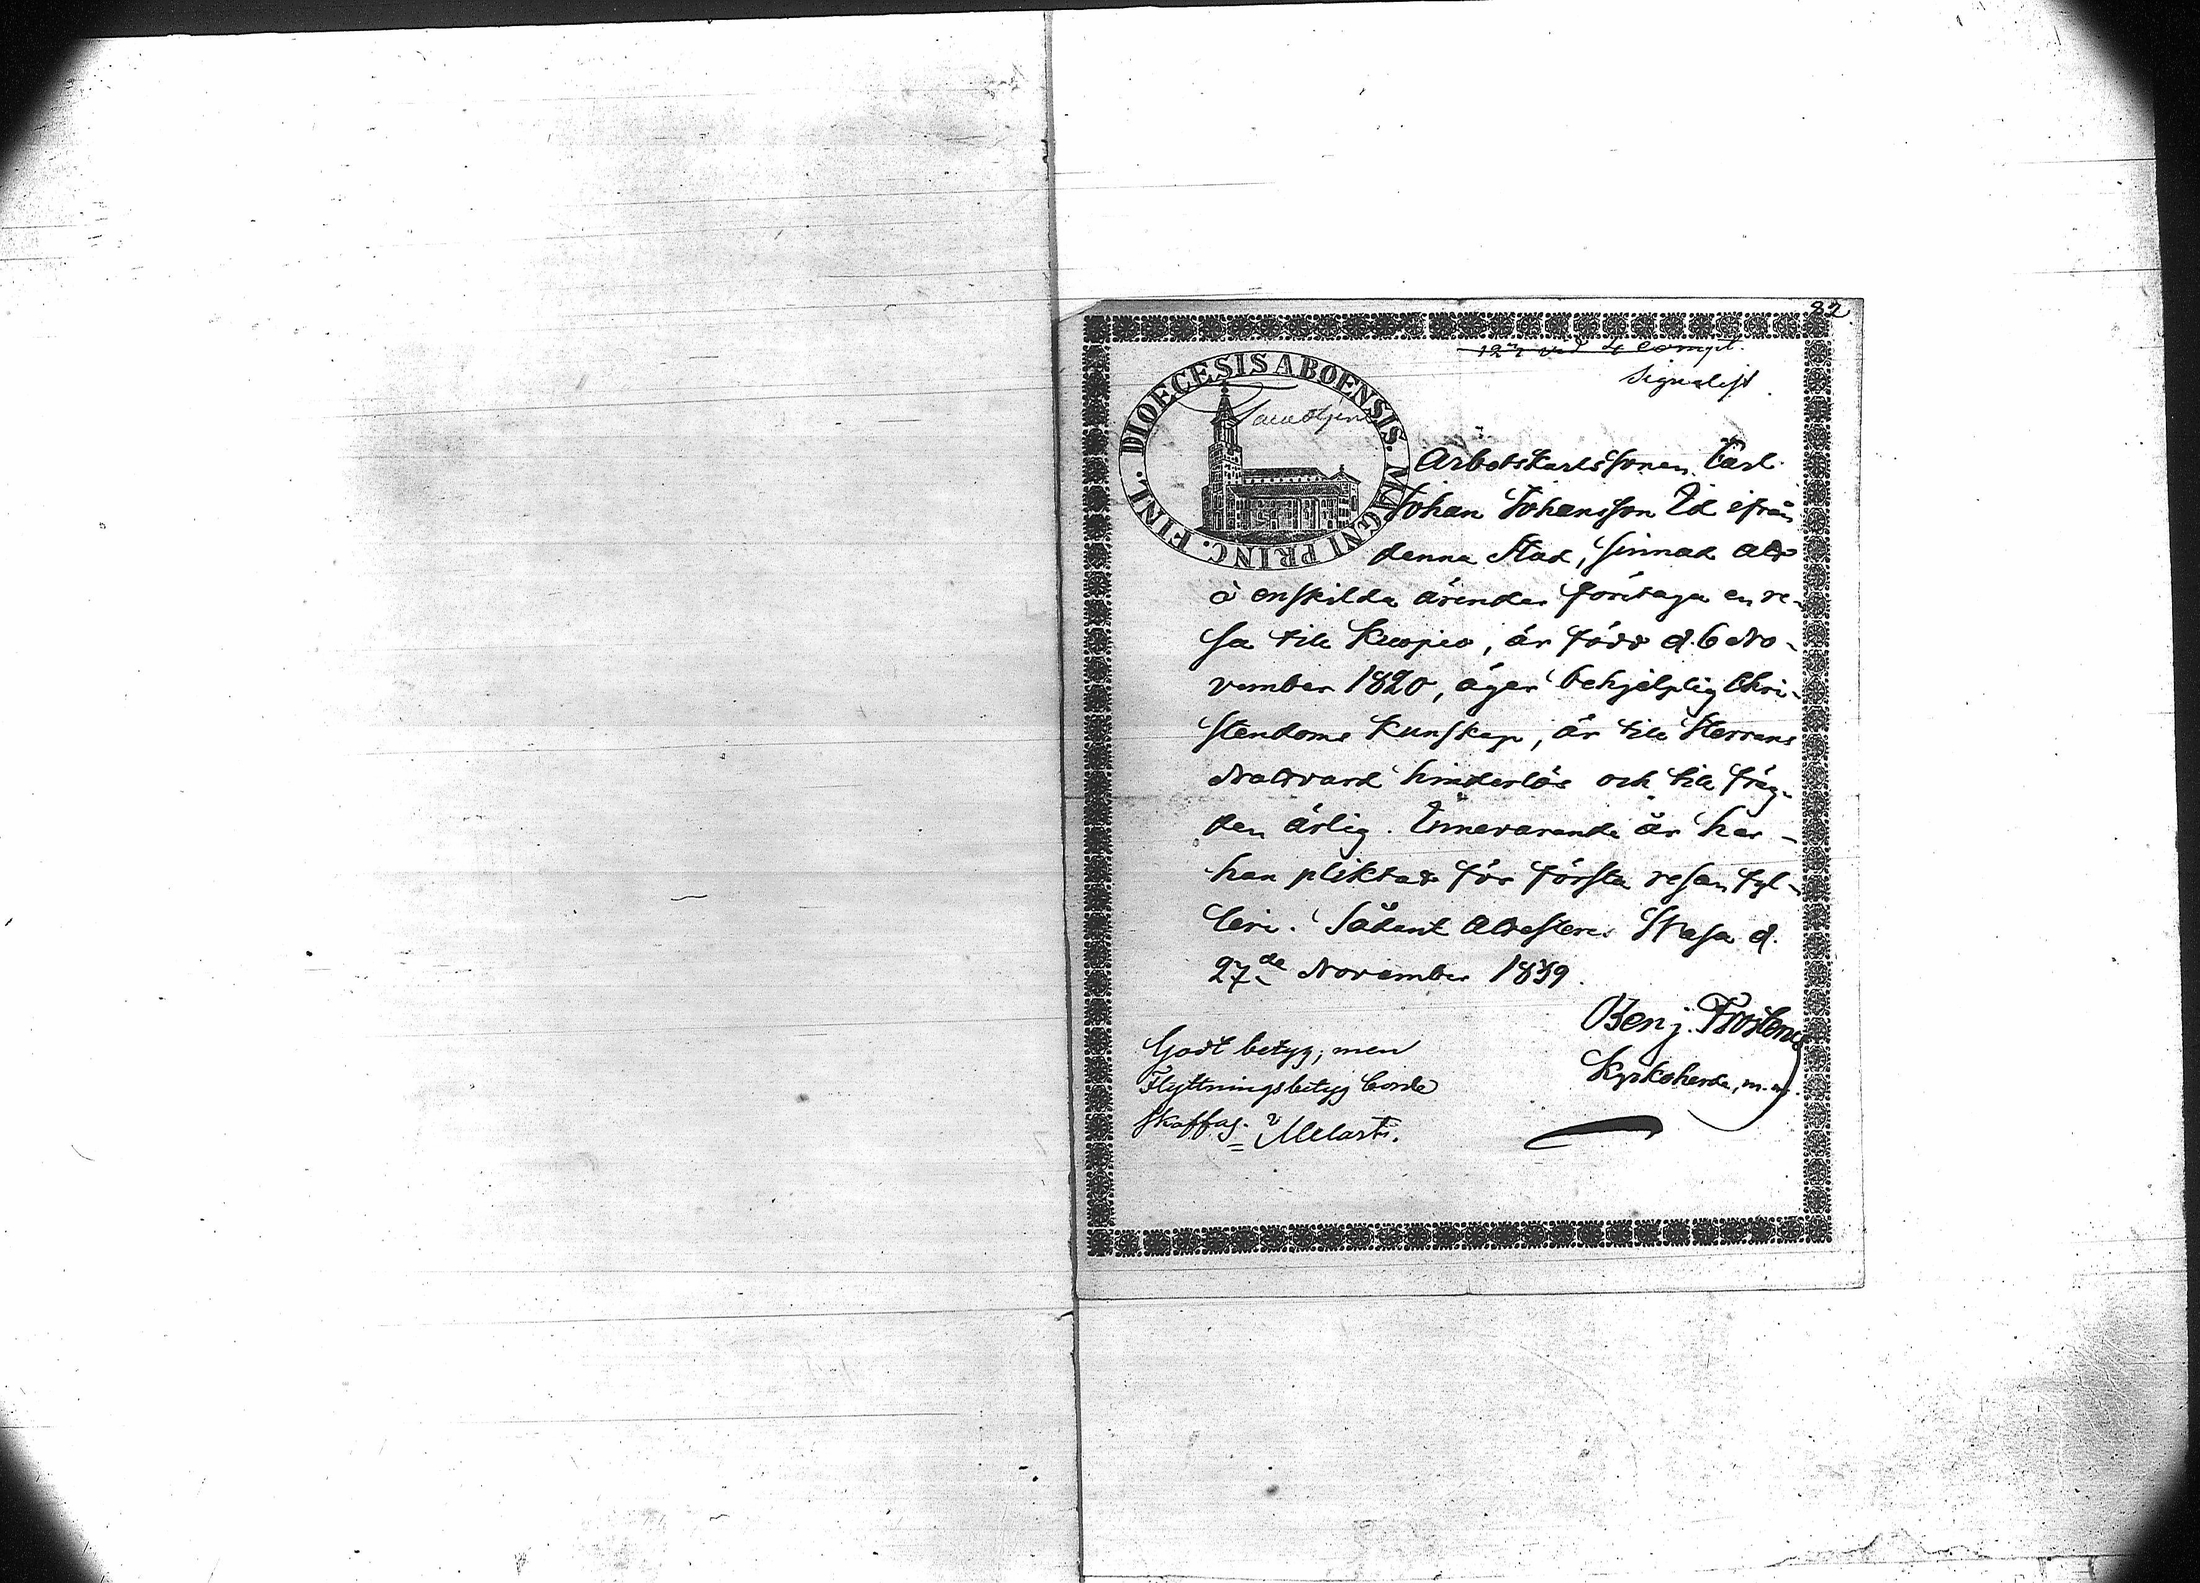 82.
127 vid 4 Compt.
Signalist
DIOECESIS ABOENSIS. MAGNI PRINC. FINL.
Arbetskarlssonen Carl
Johan Johansson Id ifrån
denna Stad, sinnad att
i enskilda ärender företaga en re-
sa till Kuopio, är född d. 6 No-
vember 1820, äger behjelplig Chri-
stendoms kunskap, är till Herrans
Nattvard hinderlös och till fräg-
den ärlig. Innevarande år har
han pliktat för första resan fyl-
leri. Sådant attesteras Wasa d.
27de November 1839.
Benj. Frosterus
Kyrkoherde, m.m.
Godt betyg; men
Flyttningsbetyg borde
skaffas. Melart.